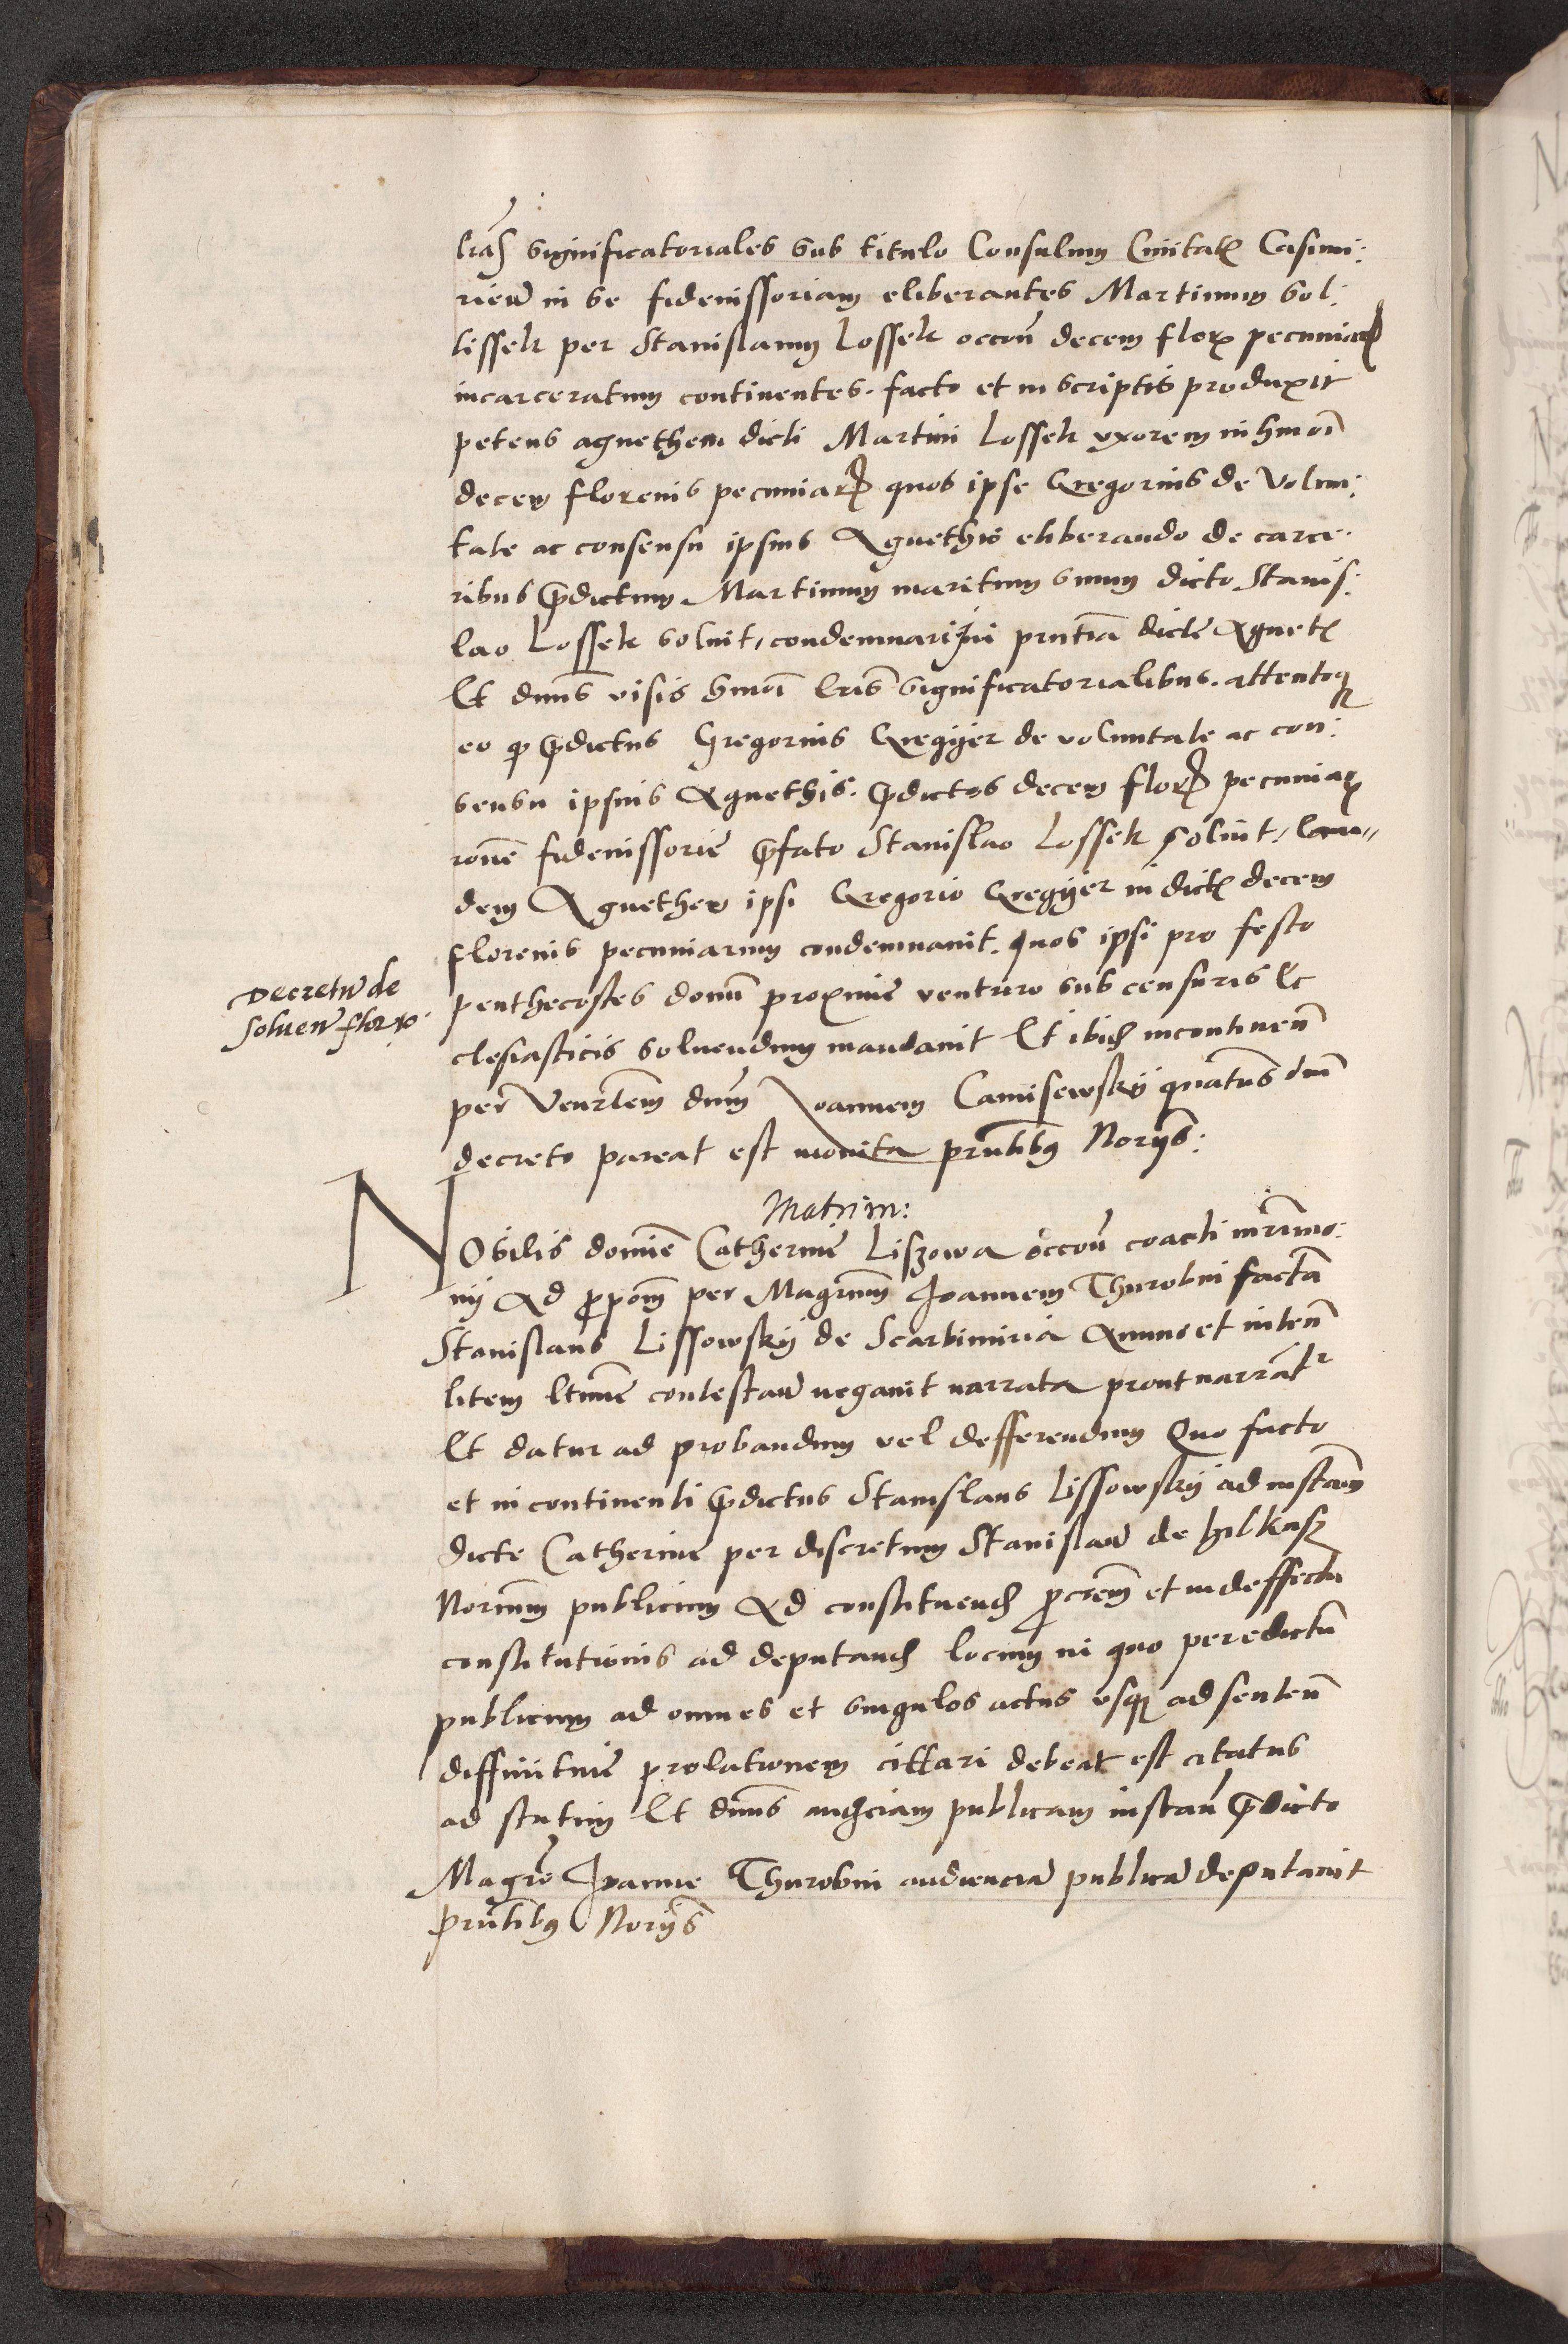 lr̃as significatoriales sub titulo Consulum Civitatꝭ Casimi:
rien̄ in se fideiussoriam eliberantes Martinum Sol:
lissek per Stanislaum Lossek occoñ decem florꝭ pecuniarꝭ
incarceratum continentes. facto et in scriptis produxit
petens agnethem dicti Martini Lossek uxorem in hm̄oi
decem florenis pecuniarꝭ quos ipse Gregorius de Volun:
tate ac consensu ipsius Agnethis eliberando de carce:
ribus p̄dictum Martinum maritum suum dicto Stanis:
lao Lossek solvit, condemnari in pñtia dicte Agnetꝭ
Et dñus visis hm̄oi lr̃is significatorialibus. attentoqꝫ
eo ꝙ p̄dictus Gregorius Gregyer de voluntate ac con:
sensu ipsius Agnethis. p̄dictos decem florꝭ pecuniarꝭ
rōne fideiussorie p̄fato Stanislao Lossek solvit, Ean„
dem Agnethem ipsi Gregorio Gregyer in dictꝭ decem
florenis pecuniarum condemnavit. quos ipsi pro festo
penthecostes domī proxime venturo sub censuris Ec
clesiasticis solvendum mandavit Et ibidꝫ incontineñ
per Veñrlem dñum Joannem Camisewsky quatenus dn̄i
decreto pareat est monita pñtibus Noriis:
Decretū de
solven̄ flor x.
Matrim:
NObilis domine Catherine Liszowa occoñ coacti mr̃imo:
nij Ad ꝓpoēm per Magrum Joannem Thurobin factā
Stanislaus Lissowsky de Scarbimiria Animo et inteñ
litem ltime contestan̄ negavit narrata prout narrātʳ
Et datur ad probandum vel defferendum Quo facto
et in continenti p̄dictus Stanislaus Lissowsky ad instam̄
dicte Catherine per discretum Stanislaū de Hilkusz
Norium publicum Ad constituendꝫ ꝓcrēm et in deffectu
constitutionis ad deputandꝫ locum in quo per edictū
publicum ad omnes et singulos actus usqꝫ ad senteñ
diffinitive prolationem cittari debeat est citatus
ad statim Et dñus audꝫciam publicam instan̄ p̄dicto
Magr̃o Joanne Thurobin audienciā publicā deputavit
pñtibus Noriis